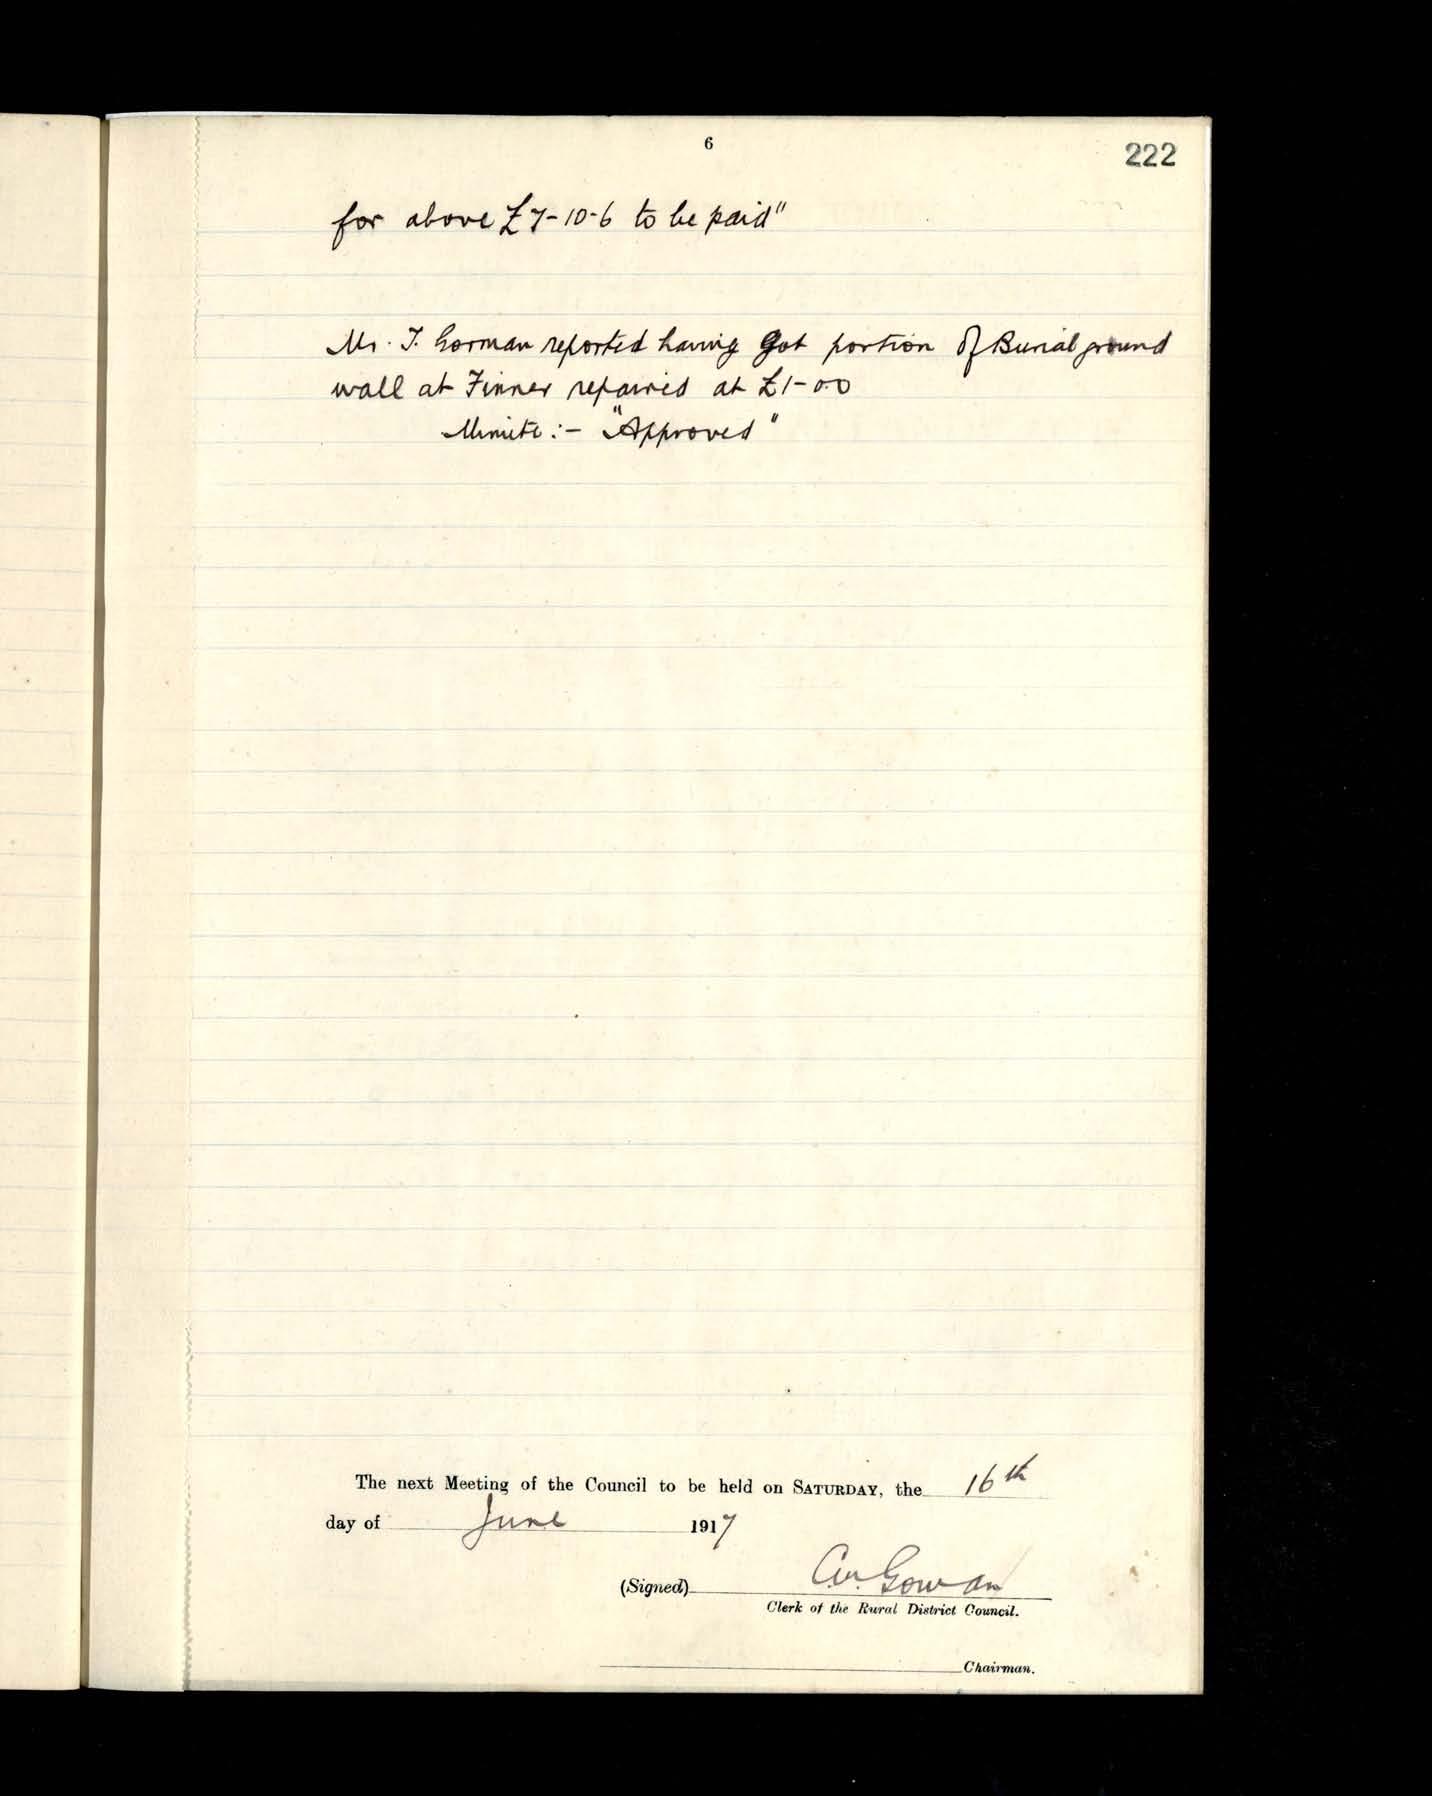 6
222
for above £7-10-6 to be paid"
Mr. T. Gorman reported having got portion of Burial ground
wall at Finner repaired at £1-0.0
Minute :- "Approved"
The next Meeting of the Council to be held on SATURDAY, the 16th
day of June 1917
(Signed) Gowan
Clerk of the Rural District Council.
Chairman.